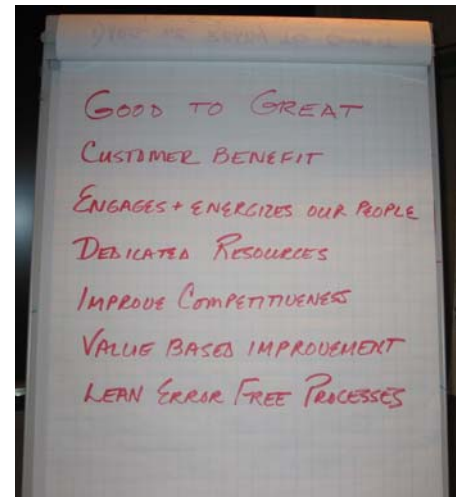 GOOD TO GREAT
CUSTOMER BENEFIT
ENGAGES + ENERGIZES OUR PEOPLE
DEDICATED RESOURCES
IMPROVE COMPETITIVENESS
VALUE BASED IMPROVEMENT
LEAN ERROR FREE PROCESSES